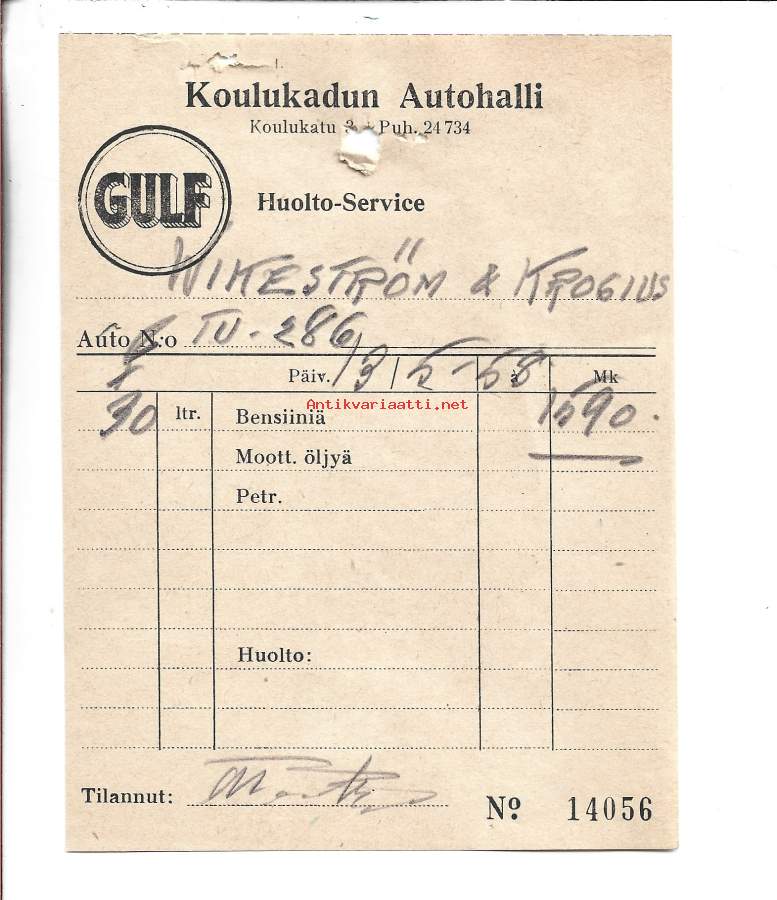 Koulukadun Autohalli
Koulukatu 3 Puh. 24 734
GULF
Huolto-Service
WIKESTRÖM & KROGIUS
Auto N:o TU-286
Päiv. 13/5-58 à Mk
30 ltr. Bensiiniä 1590.
Antikvariaatti.net
Moott. öljyä
Petr.
Huolto:
Tilannut:
Nº 14056